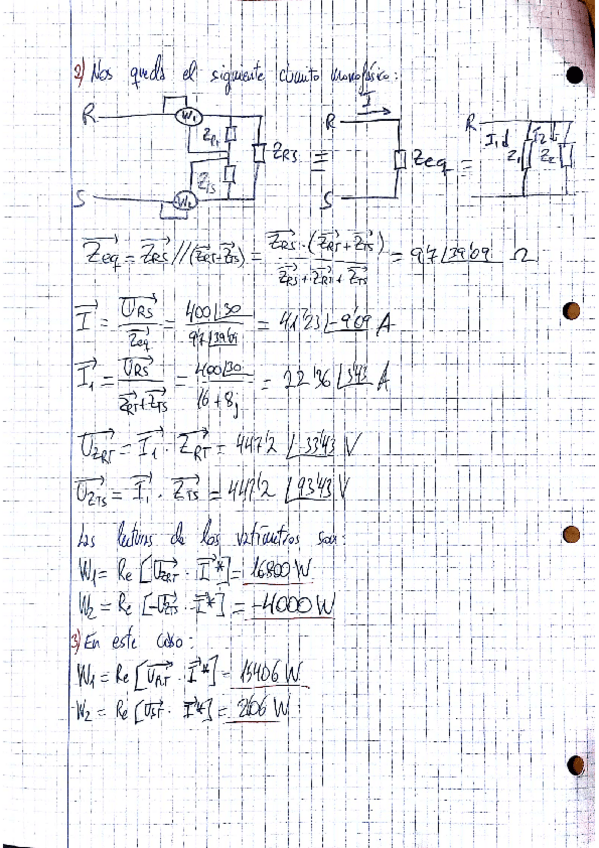 2) Nos queda el siguiente circuito monofásico:
R W1 Z_RT Z_TS Z_RS S W2
=
I R Zeq S
=
R I1 Z1 I2 Z2
Zeq = Z_RS // (Z_RT + Z_TS) = Z_RS · (Z_RT + Z_TS) / (Z_RS + Z_RT + Z_TS) = 9'7 ∠39'09 Ω
I = U_RS / Zeq = 400∠30 / 9'7∠39'09 = 41'23 ∠-9'09 A
I1 = U_RS / (Z_RT + Z_TS) = 400∠30 / (16 + 8j) = 22'36 ∠3'43 A
U_ZRT = I1 · Z_RT = 447'2 ∠-33'43 V
U_ZTS = I1 · Z_TS = 447'2 ∠93'43 V
Las lecturas de los vatímetros son:
W1 = Re [U_ZRT · I*] = 16800 W
W2 = Re [-U_ZTS · I*] = -4000 W
3) En este caso:
W1 = Re [U_RT · I*] = 15406 W
W2 = Re [U_ST · I*] = 2606 W